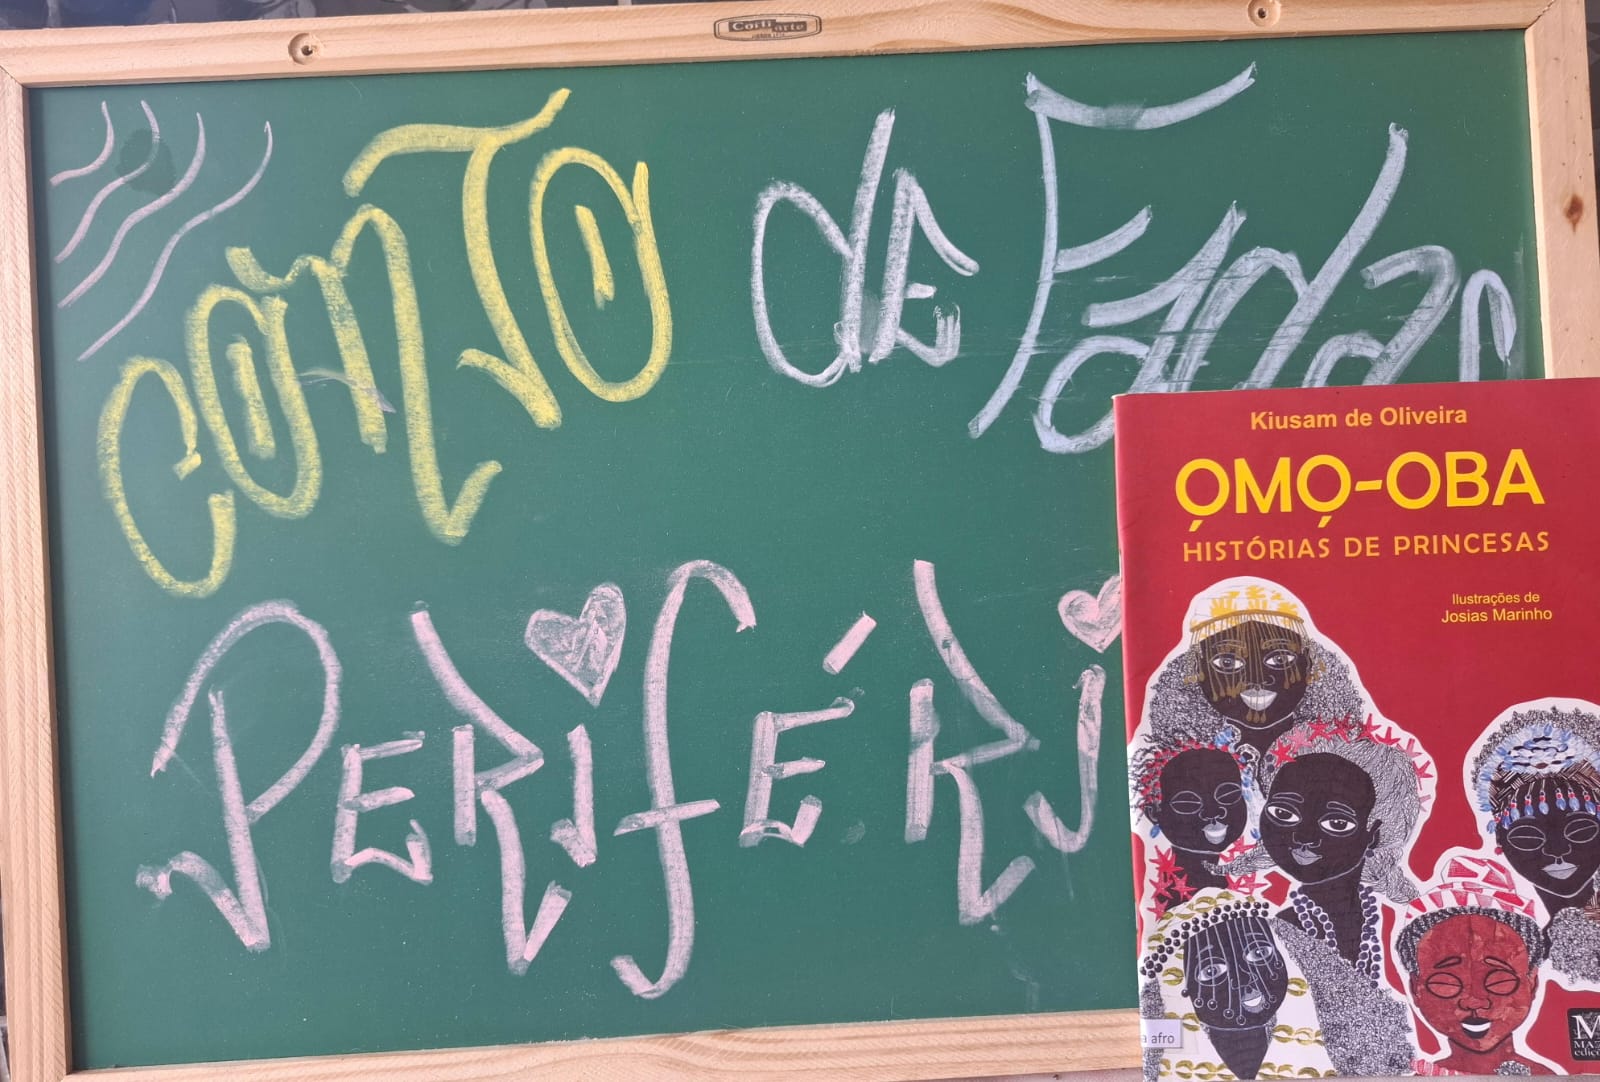 Conti arte
CONTO de Fadas
PERIFÉRI
Kiusam de Oliveira
ỌMỌ-OBA
HISTÓRIAS DE PRINCESAS
Ilustrações de
Josias Marinho
a afro